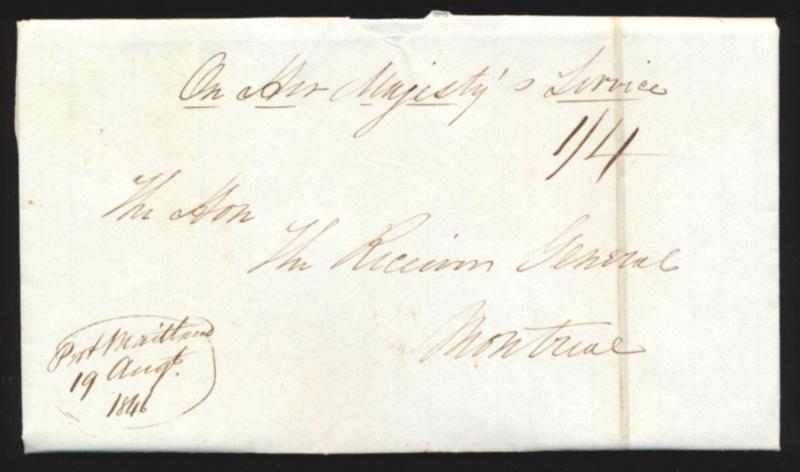 On Her Majesty's Service
1/4
The Hon
The Receiver General
Montreal
Port Maitland
19 Augt.
1846